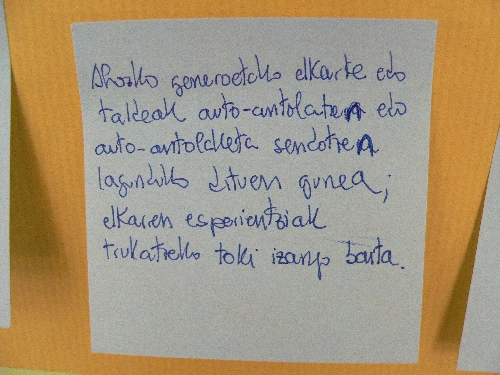 Ahozko generoetako elkarte edo
taldeak auto-antolatzen edo
auto-antolaketa sendotzen
lagunduko dituen gunea;
elkarren esperientziak
trukatzeko toki izango baita.